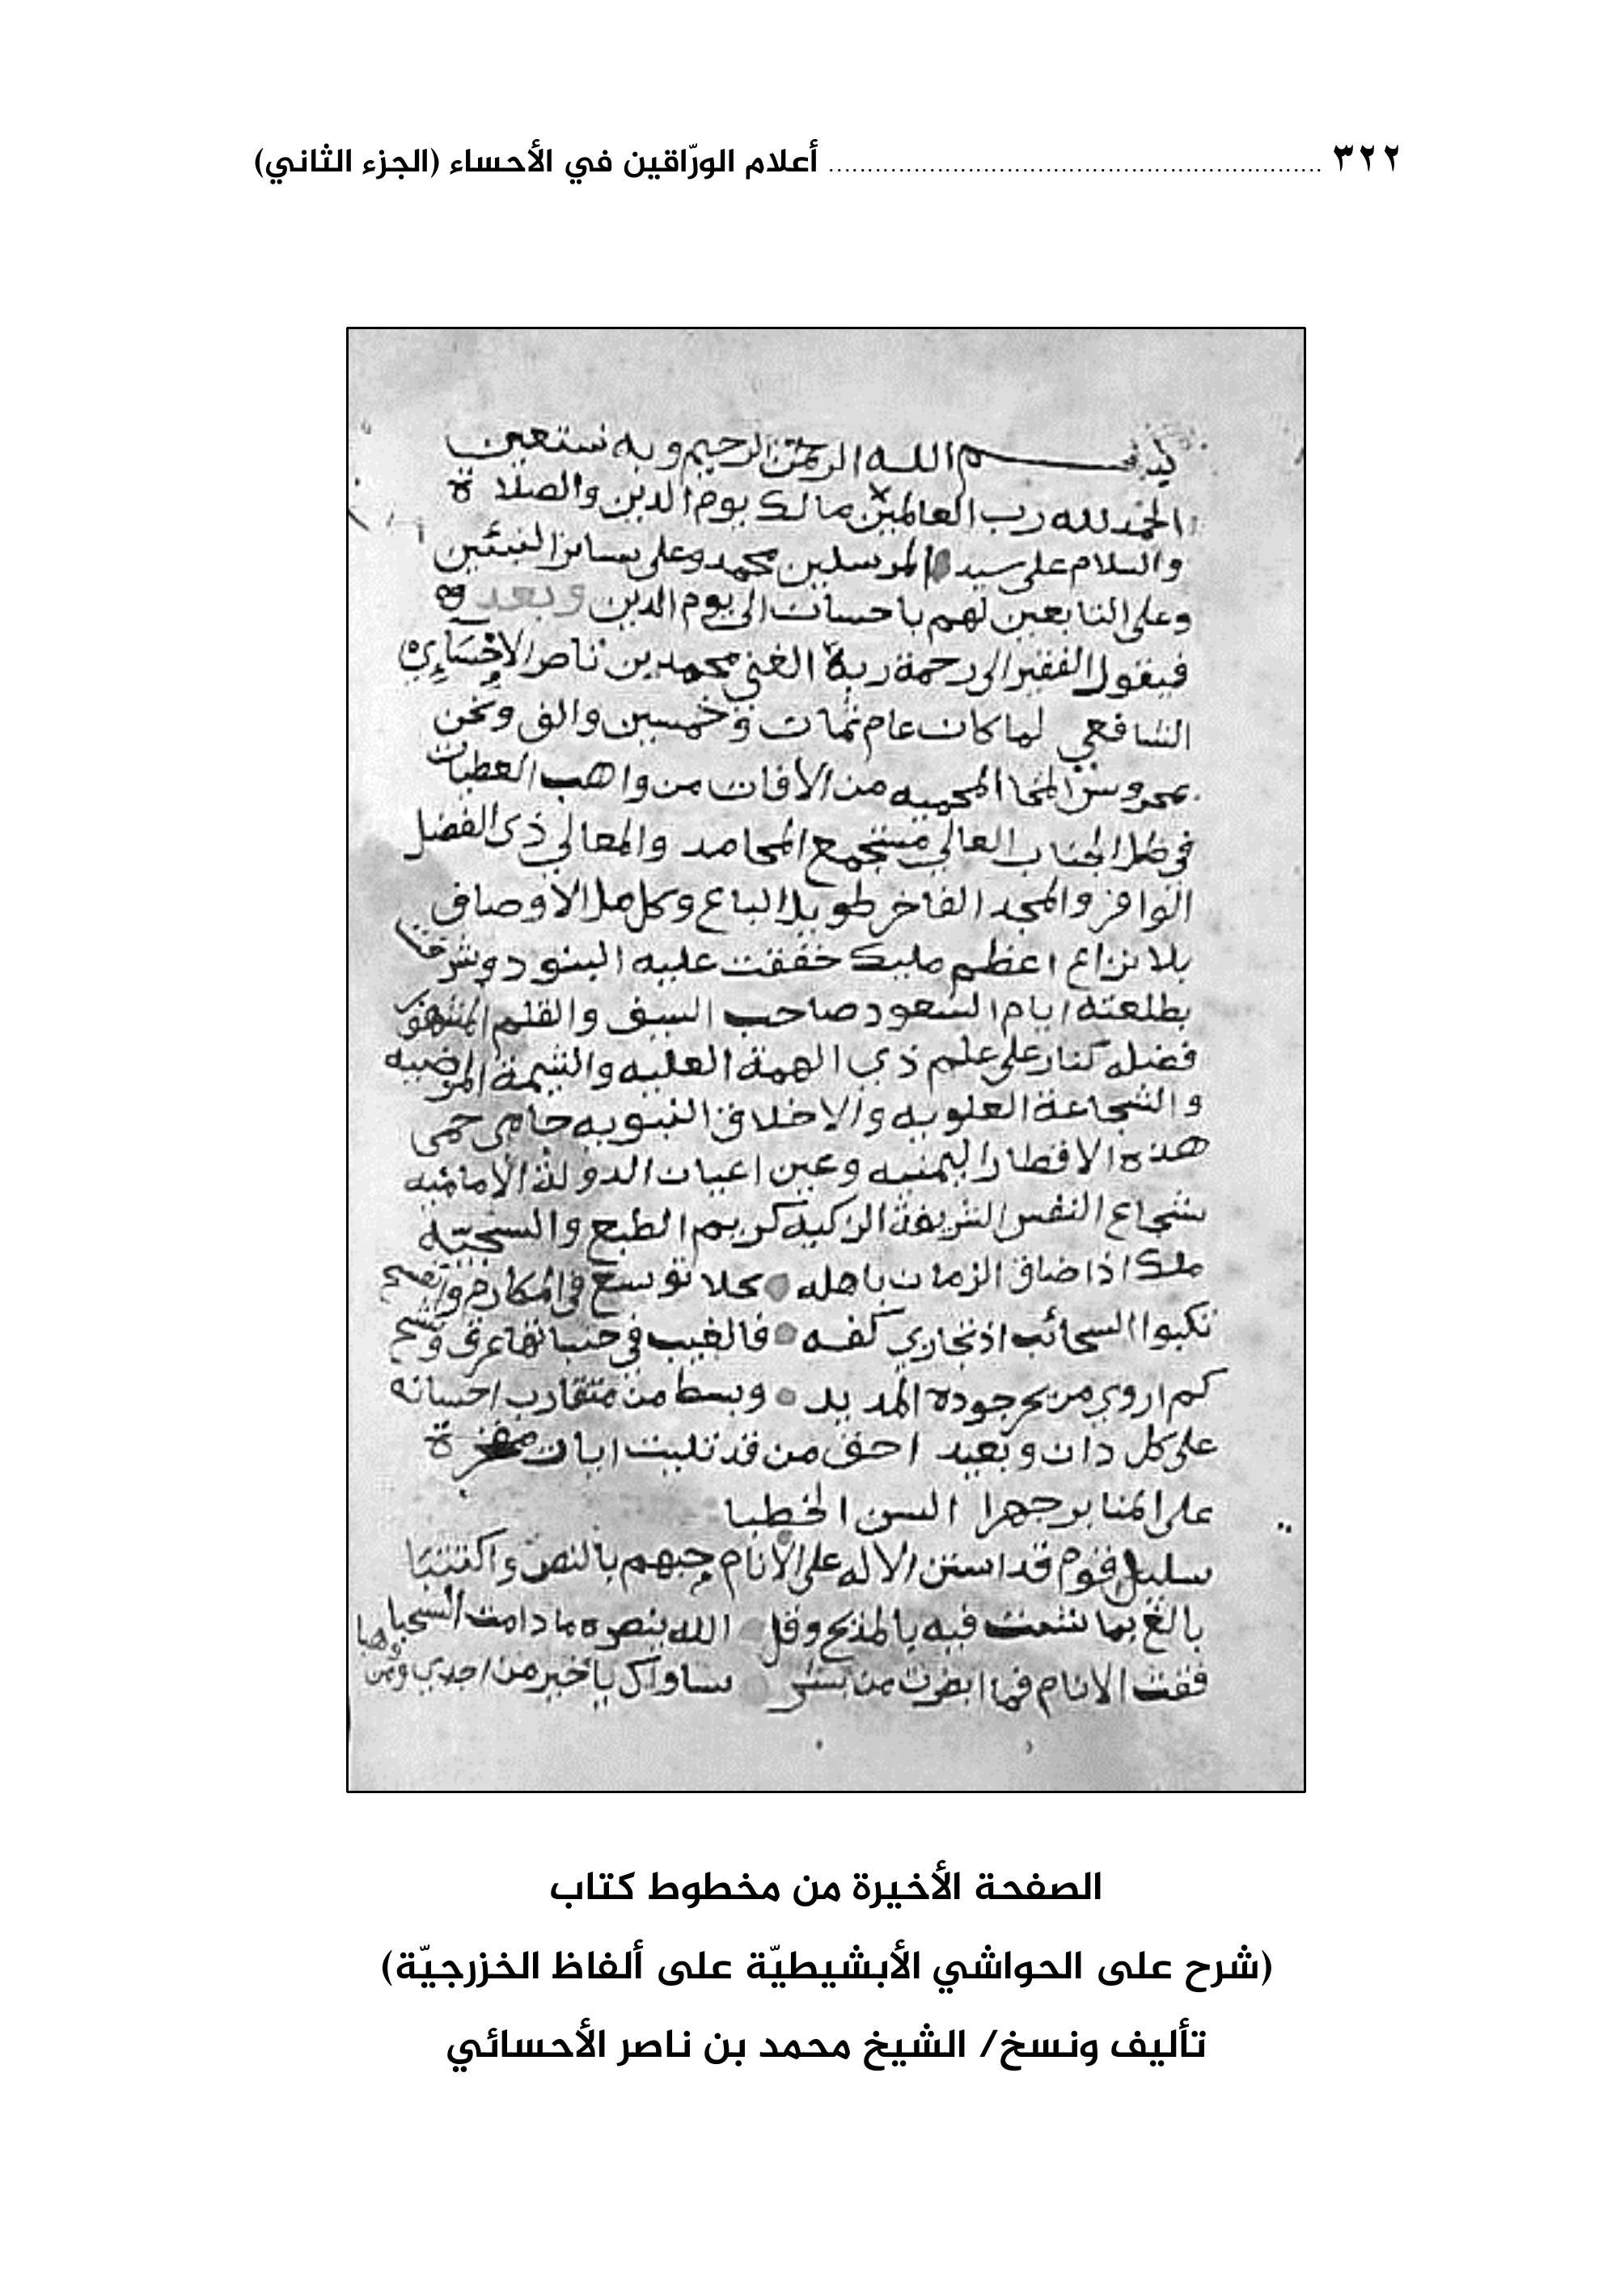 ٣٢٢ ........ أعلام الورّاقين في الأحساء (الجزء الثاني)
بسم الله الرحمن الرحيم وبه نستعين
الحمد لله رب العالمين مالك يوم الدين والصلاة
والسلام على سيد المرسلين محمد وعلى سائر النبيين
وعلى التابعين لهم باحسان الى يوم الدين وبعد
فيقول الفقير الى رحمة ربه الغني محمد بن ناصر الاحسائي
الشافعي لما كان عام ثمان وخمسين والف ونحن
المخا المحميه من الافات من واهب العطيات
في ظل الجناب العالي مستجمع المحامد والمعالي ذى الفضل
الوافر والمجد الفاخر طويل الباع وكامل الاوصاف
بلا نزاع اعظم مليك خفقت عليه البنود وشرقت
بطلعته ايام السعود صاحب السيف والقلم المشهور
فضله كنار على علم ذي الهمة العليه والشيمة المرضيه
والشجاعة العلويه والاخلاق النبويه حامى حمى
هذه الاقطار اليمنيه وعين اعيان الدولة الاماميه
شجاع النفس الشريفة الزكية كريم الطبع والسجيّه
ملك اذا ضاق الزمان باهله توسع في المكارم
السحائب اذ تجاري كفه في
كم اروي من بحر جوده المديد وبسط من متقارب احسانه
على كل دان وبعيد احق من قد تليت ايات
على المنابر جهرا السن الخطبا
سليل قوم قد اسنن الاله على الانام حبهم بالنص
بالغ بما شئت فيه بالمدح وقل الله ينصره ما دامت السحبا
ففت الانام فما ابصرت من بشر ساواك يا خير من
الصفحة الأخيرة من مخطوط كتاب
(شرح على الحواشي الأبشيطيّة على ألفاظ الخزرجيّة)
تأليف ونسخ/ الشيخ محمد بن ناصر الأحسائي